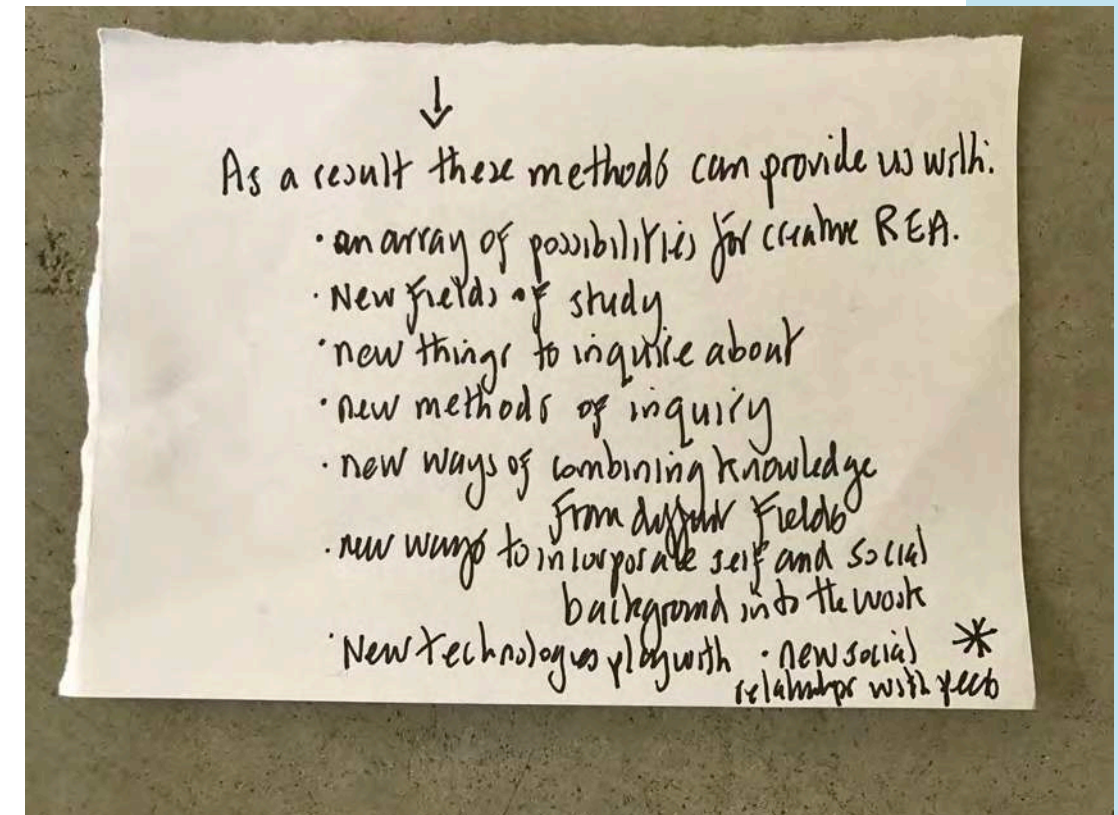 As a result these methods can provide us with:
· an array of possibilities for creative REA.
· New fields of study
· new things to inquire about
· new methods of inquiry
· new ways of combining knowledge
from different Fields
· new ways to incorporate self and social
background into the work
· New technologies play with · new social
relationships with peers